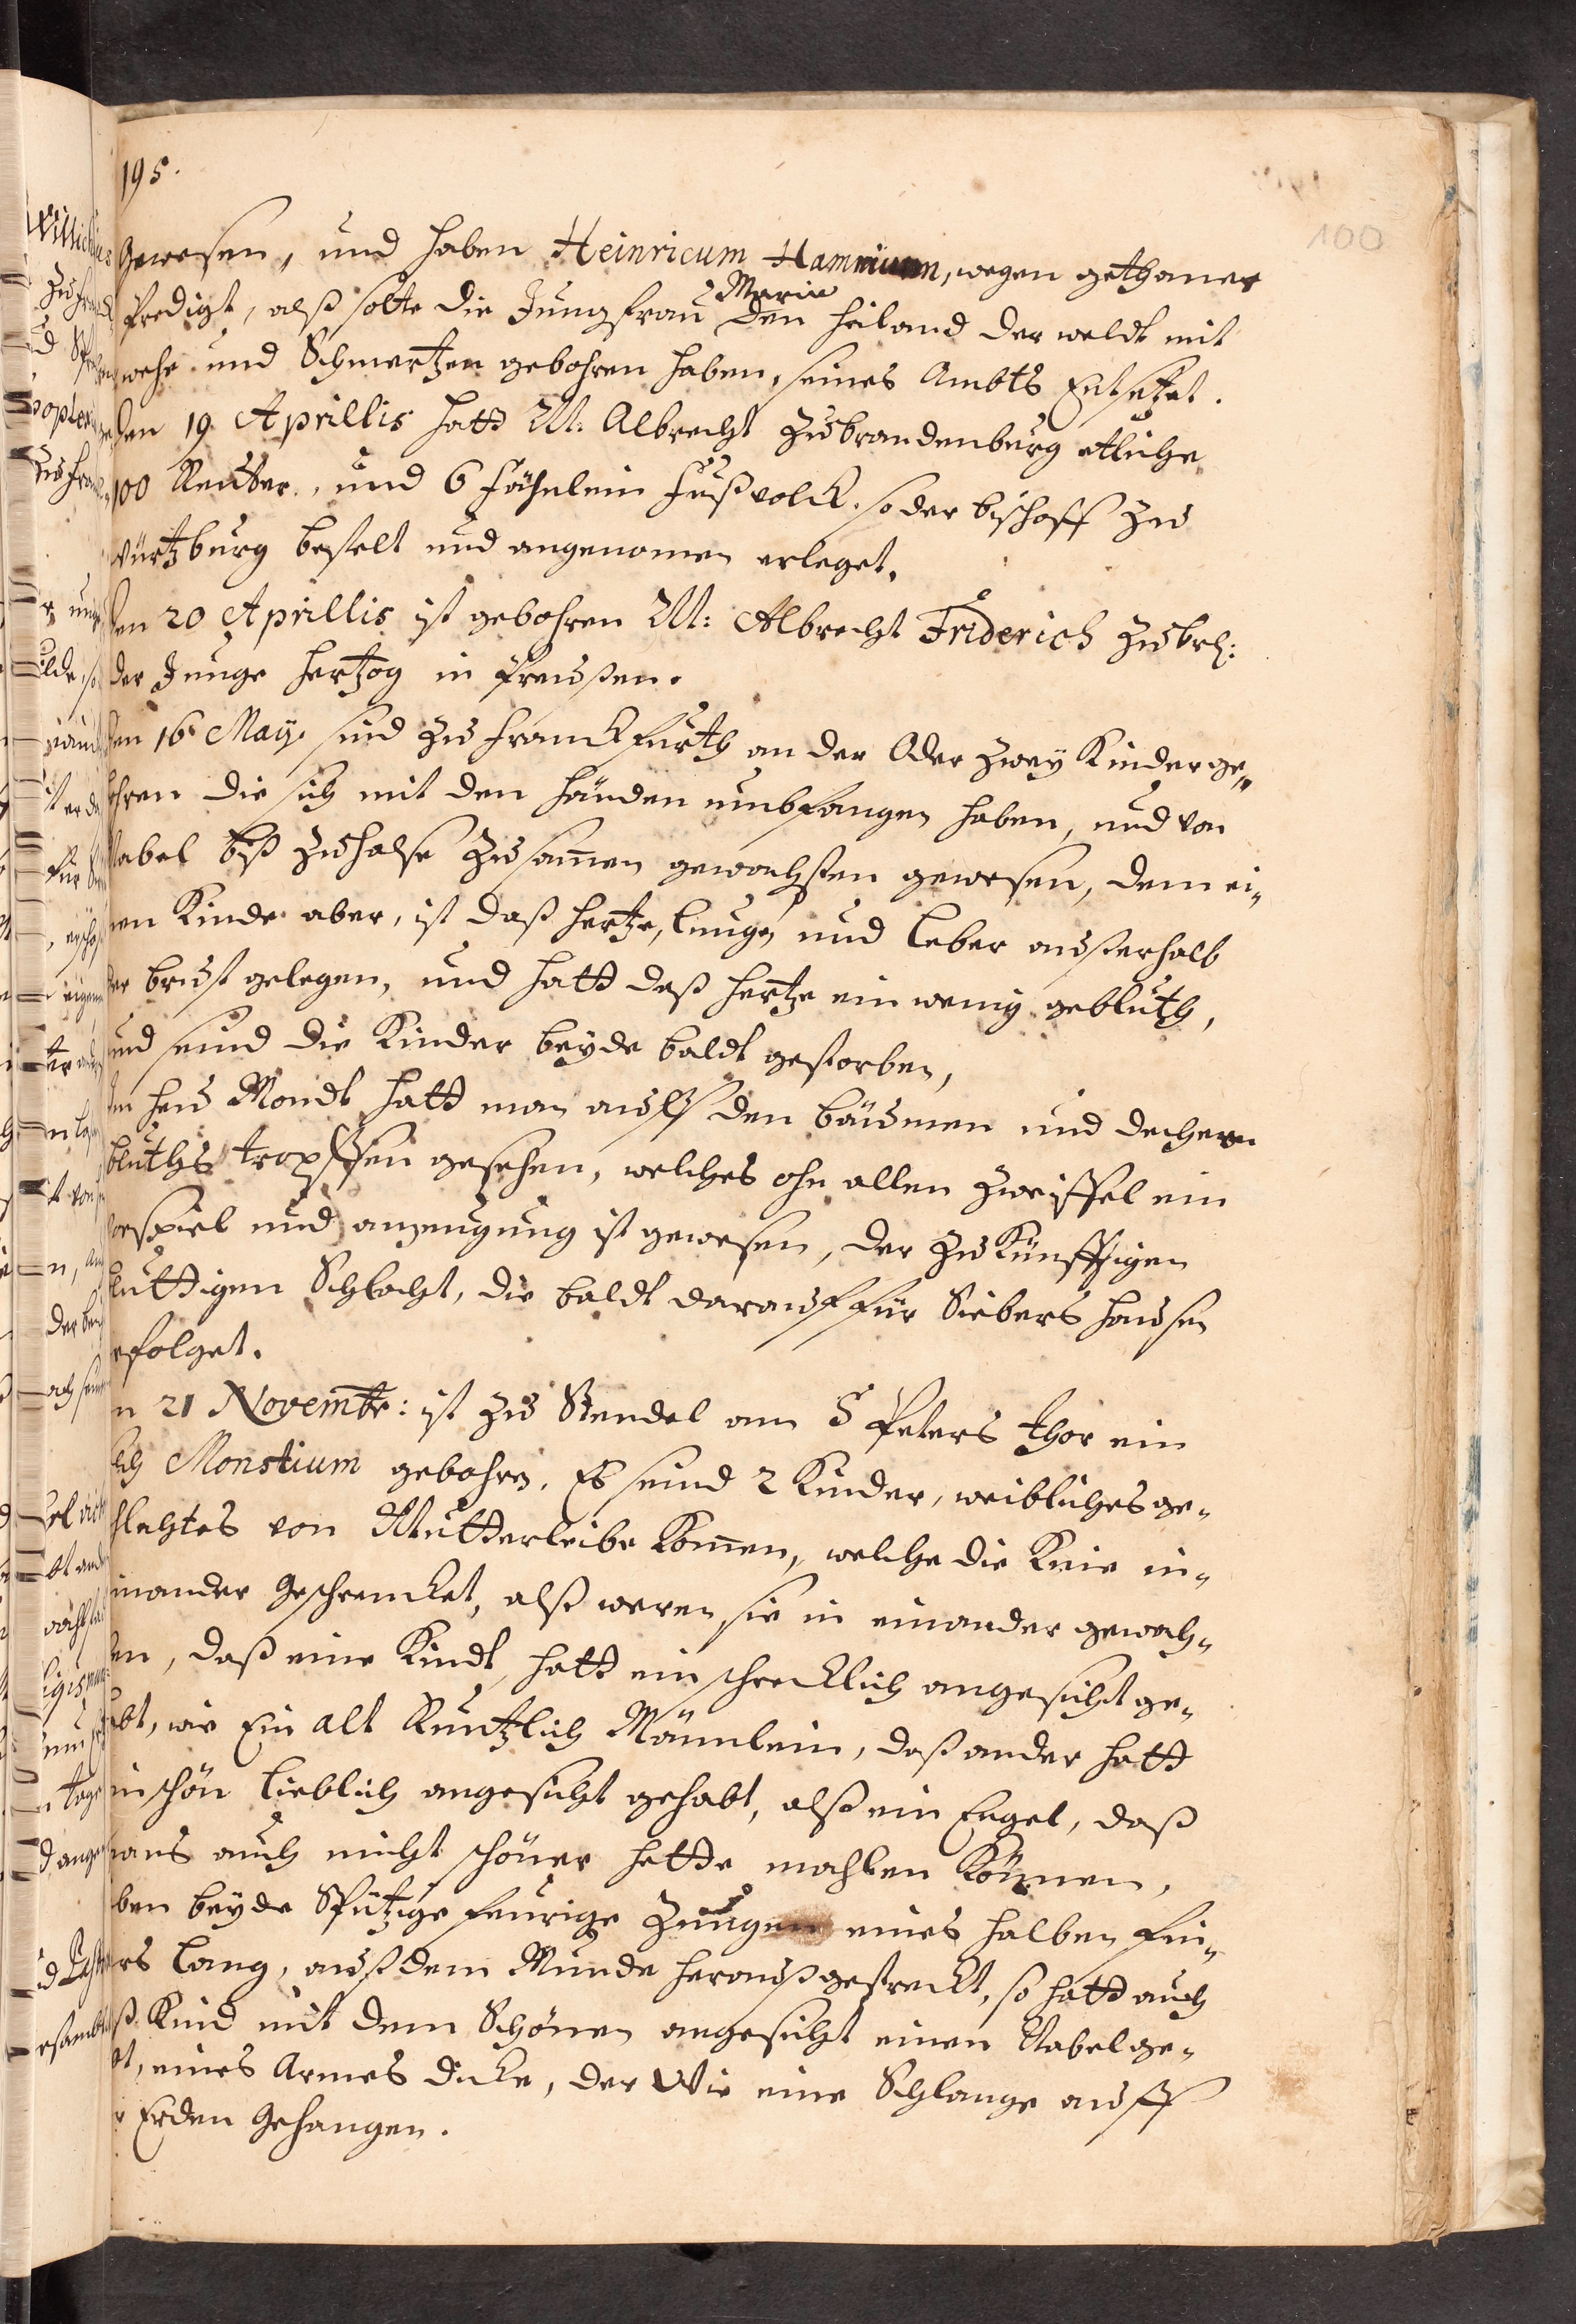 195.
100
Gewesen, und haben Heinricum Hammium, wegen gethaner
Maria
Predigt, alß solte die Jungfrau den Heiland der weldt mit
wehe und Schmertzen gebohren haben, seines Ambts Entsetzet.
den 19 Aprillis hatt M. Albrecht zu brandenburg etliche
100 Reutter, und 6 Fähnlein Fußvolck. so der bischoff zu
würtzburg bestelt und angenomen erleget.
den 20 Aprillis ist gebohren M: Albrecht Friderich zu brd:
der Junge Hertzog in Preussen.
den 16 May. sind zu Franckfurth an der Oder zwey Kinder ge-
ohren die sich mit den Händen umbfangen haben, und von
Nabel biß zu halse zusamen gewachssen gewesen, dem ei-
nen Kinde aber, ist daß Hertze, Lunge und Leber ausserhalb
der brust gelegen, und hatt daß Hertze ein wenig gebluth,
und seind die Kinder beyde baldt gestorben,
Im Heu Mondt hatt man auff den bäumen und dechern
bluths tropffen gesehen, welches ohn allen zweiffel ein
vorspiel und anzeugung ist gewesen, der zukünfftigen
bluttigen Schlacht, die baldt darauf für Siebers hausen
erfolget.
n 21 Novembr: ist zu Stendel am S Peters thor ein
lich Monstium gebohrn. Es seind 2 Kinder, weibliches ge-
schlechtes von Mutterleibe komen, welche die Knie in-
einander Geschrencket, alß weren sie in einander gewach-
sen, daß eine Kindt, hatt ein schrecklich angesicht ge-
habt, wie Ein alt Runtzlich Männlein, daß ander hatt
ein schön lieblich angesicht gehabt, alß ein Engel, daß
mans auch nicht schöner hette mahlen können,
haben beyde Spitzige feurige Zungen eines halben fin-
gers lang, auß dem Munde herauß gestreckt, so hatt auch
daß Kind mit dem Schönen angesicht einen Nabel ge-
bt, eines Armes dicke, der Wie eine Schlange auff
r Erden Gehangen.